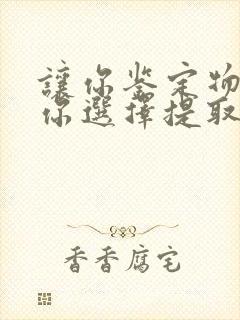 讓你鉴定物
你選擇提取
香香腐宅